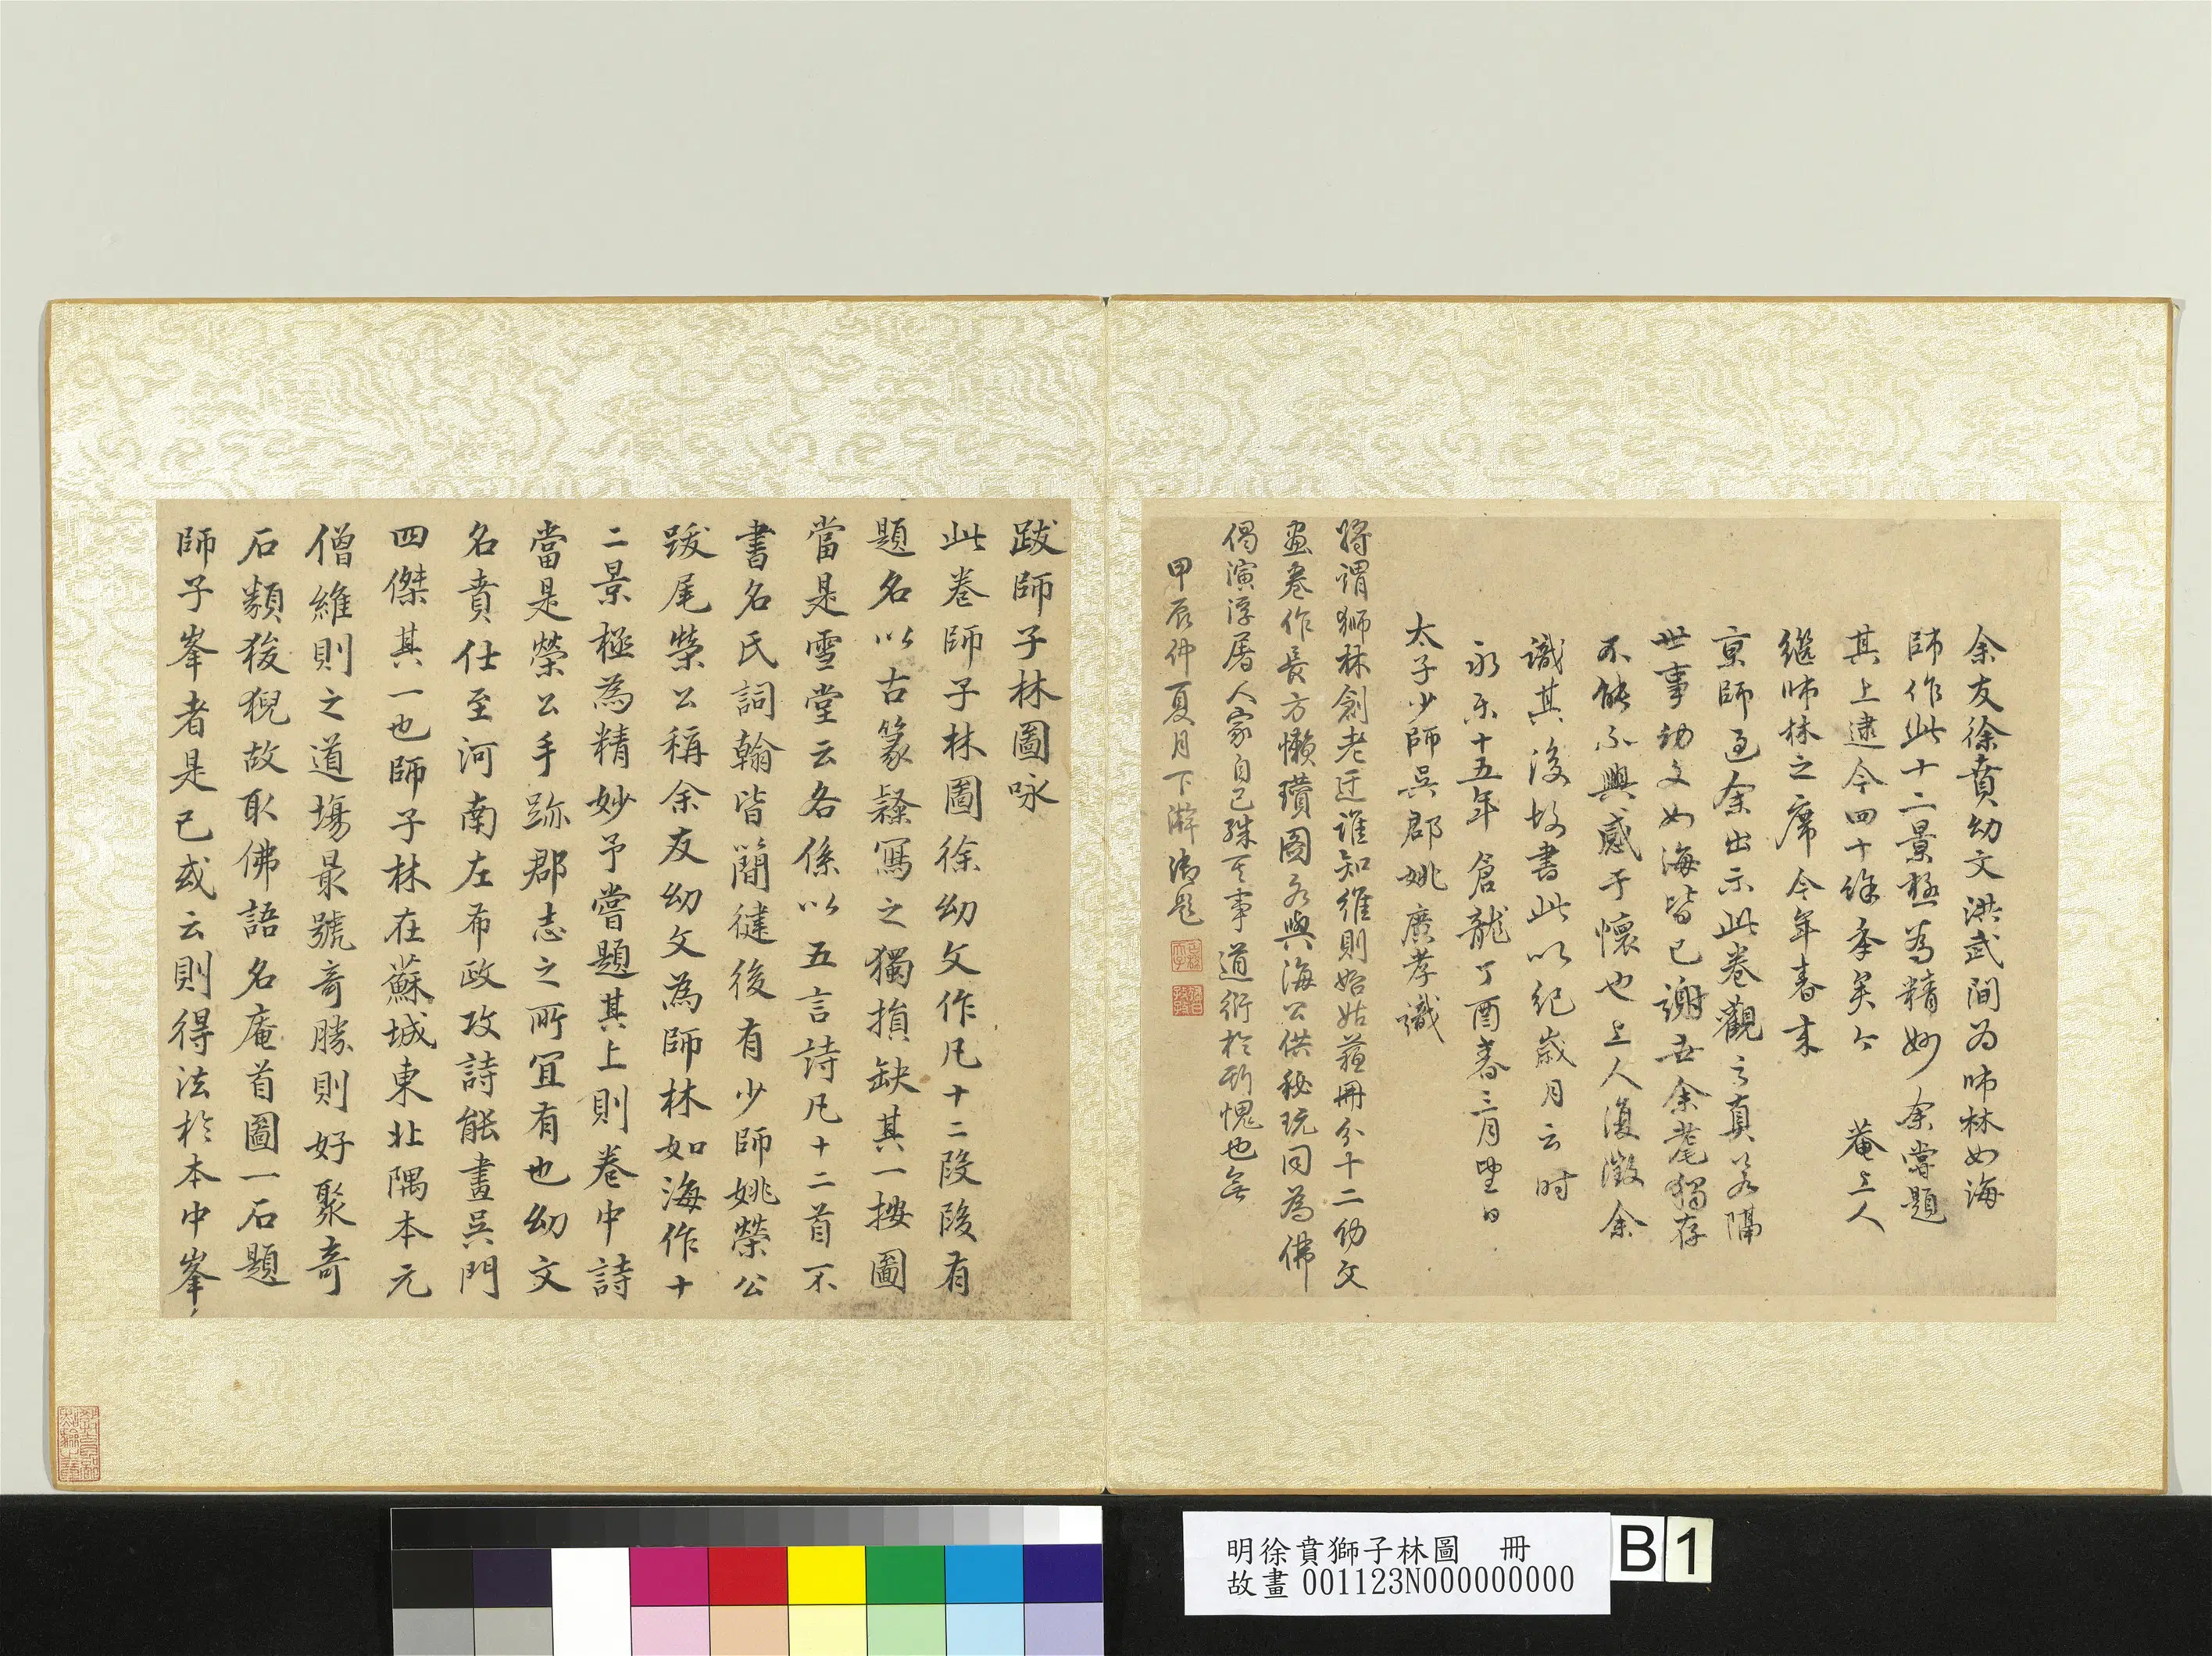 余友徐賁幼文洪武間为师林如海
师作此十二景極為精妙余嘗題
其上逮今四十餘年矣今 菴上人
繼师林之席今年春來
京師過余出示此卷觀之真若隔
世事幼文如海皆已謝去余耄獨存
不能不興感于懷也上人復徵余
識其後故書此以紀歲月云时
永乐十五年倉龍丁酉春三月望日
太子少師吳郡姚廣孝識
將謂獅林創老迂誰知維則始姑蘇冊分十二幼文
畫卷作長方懶瓚圖亦與海公供秘玩同為佛
偈演浮屠人家自己殊可事道衍於斯愧也無
甲辰仲夏月下澣御題
跋師子林圖咏
此卷師子林圖徐幼文作凡十二段段有
題名以古篆繇寫之獨損缺其一按圖
當是雪堂云各係以五言詩凡十二首不
書名氏詞翰皆簡揵後有少師姚榮公
跋尾榮公稱余友幼文為師林如海作十
二景極為精妙予嘗題其上則卷中詩
當是榮公手跡郡志之所宜有也幼文
名賁仕至河南左布政攻詩能畫吳門
四傑其一也師子林在蘇城東北隅本元
僧維則之道場最號奇勝則好聚奇
石類狻猊故取佛語名庵首圖一石題
師子峯者是已或云則得法於本中峯
明徐賁獅子林圖 冊
故畫001123N000000000
B1